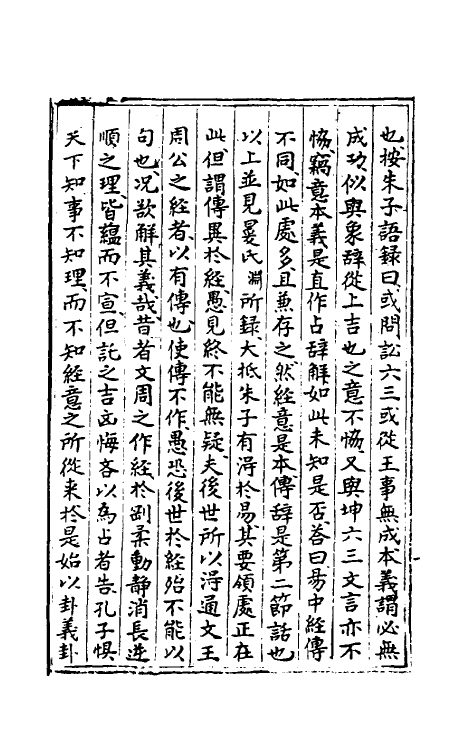 也按朱子語録曰或問訟六三或從王事無成本義謂必無
成功似與象辭從上吉也之意不恊又與坤六三文言亦不
恊竊意本義是直作占辭解如此未知是否荅曰易中經傳
不同如此處多且兼存之然經意是本傳辭是第二節話也
以上並見晏氏淵所録大抵朱子有淂於易其要領處正在
此但謂傳異於經愚見終不能無疑夫後世所以淂通文王
周公之經者以有傳也使傳不作愚恐後世於經殆不能以
句也况欲解其義哉昔者文周之作經於剛柔動静消長逆
順之理皆藴而不宣但託之吉凶悔吝以為占者告孔子惧
天下知事不知理而不知經意之所從来於是始以卦義卦